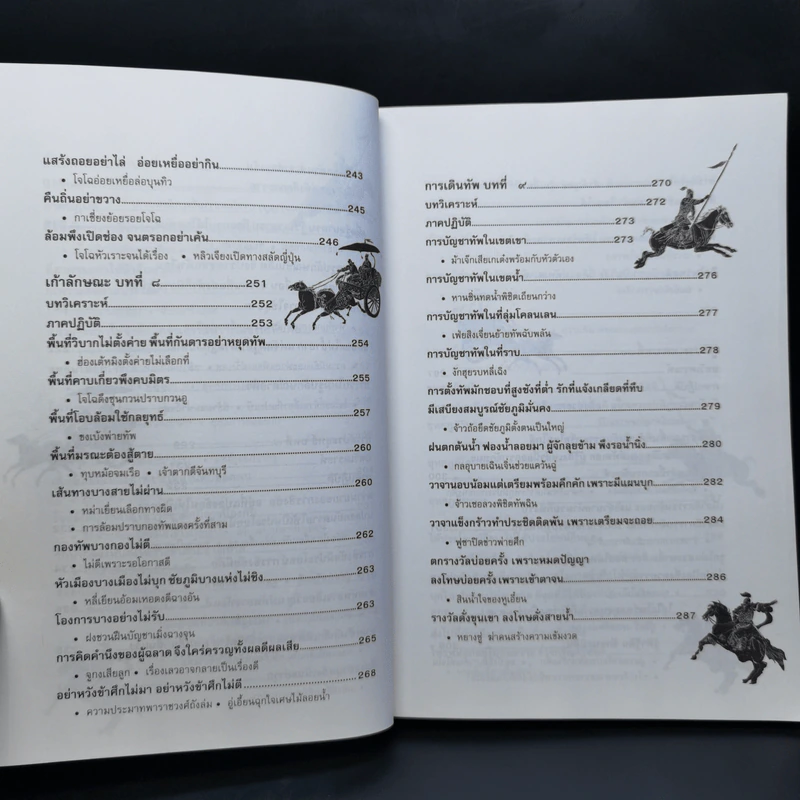 แสร้งถอยอย่าไล่ อ่อยเหยื่ออย่ากิน..........243
• โจโฉอ่อยเหยื่อล่อบุนทิว
คืนถิ่นอย่าขวาง..........245
• กาเซี่ยงย้อยรอยโจโฉ
ล้อมพึงเปิดช่อง จนตรอกอย่าเค้น..........246
• โจโฉหัวเราะจนได้เรื่อง • หลิวเจียงเปิดทางสลัดญี่ปุ่น
เก้าลักษณะ บทที่ ๘..........251
บทวิเคราะห์..........252
ภาคปฏิบัติ..........253
พื้นที่วิบากไม่ตั้งค่าย พื้นที่กันดารอย่าหยุดทัพ..........254
• ฮ่องเต้หมิงตั้งค่ายไม่เลือกที่
พื้นที่คาบเกี่ยวพึงคบมิตร..........255
• โจโฉดึงซุนกวนปราบกวนอู
พื้นที่โอบล้อมใช้กลยุทธ์..........257
• ขงเบ้งพ่ายทัพ
พื้นที่มรณะต้องสู้ตาย..........260
• ทุบหม้อจมเรือ • เจ้าตากตีจันทบุรี
เส้นทางบางสายไม่ผ่าน..........260
• หม่าเยี่ยนเลือกทางผิด
• การล้อมปราบกองทัพแดงครั้งที่สาม
กองทัพบางกองไม่ตี..........262
• ไม่ตีเพราะรอโอกาสตี
หัวเมืองบางเมืองไม่บุก ชัยภูมิบางแห่งไม่ชิง..........263
• หลี่เยียนอ้อมเทอดงตงฉางอัน
โองการบางอย่างไม่รับ..........263
• ฝงชวนฝืนบัญชาเมิ่งฉางจุน
การคิดคำนึงของผู้ฉลาด จึงใคร่ครวญทั้งผลดีผลเสีย..........265
• จูกงเสียลูก • เรื่องเลวอาจกลายเป็นเรื่องดี
อย่าหวังข้าศึกไม่มา อย่าหวังข้าศึกไม่ตี..........268
• ความประมาทพาราชวงศ์ถังล่ม • อู่เอี้ยนฉุกใจเศษไม้ลอยน้ำ
การเดินทัพ บทที่ ๙..........270
บทวิเคราะห์..........272
ภาคปฏิบัติ..........273
การบัญชาทัพในเขตเขา..........273
• ม้าเจ๊กเสียเกเต๋งพร้อมกับหัวตัวเอง
การบัญชาทัพในเขตน้ำ..........276
• หานซิ่นทดน้ำพิชิตเถียนกว่าง
การบัญชาทัพในที่ลุ่มโคลนเลน..........277
• เฟ่ยสิงเจี่ยนย้ายทัพฉับพลัน
การบัญชาทัพในที่ราบ..........278
• งักฮุยรบหลี่เฉิง
การตั้งทัพมักชอบที่สูงชังที่ต่ำ รักที่แจ้งเกลียดที่ทึบ
มีเสบียงสมบูรณ์ชัยภูมิมั่นคง..........279
• จ้าวถัอยึดชัยภูมิตั้งตนเป็นใหญ่
ฝนตกต้นน้ำ ฟองน้ำลอยมา ผู้จักลุยข้าม พึงรอน้ำนิ่ง..........280
• กลอุบายเฉินเจิ่นช่วยแคว้นฉู่
วาจานอบน้อมแต่เตรียมพร้อมคึกคัก เพราะมีแผนบุก..........282
• จ้าวเซอลวงพิชิตทัพฉิน
วาจาแข็งกร้าวทำประชิดติดพัน เพราะเตรียมจะถอย..........284
• ฟูซาปิดข่าวพ่ายศึก
ตกรางวัลบ่อยครั้ง เพราะหมดปัญญา
ลงโทษบ่อยครั้ง เพราะเข้าตาจน..........286
• สินน้ำใจของทูเอี้ยน
รางวัลดั่งขุนเขา ลงโทษดั่งสายน้ำ..........287
• หยางซู่ ฆ่าคนสร้างความเข้มงวด